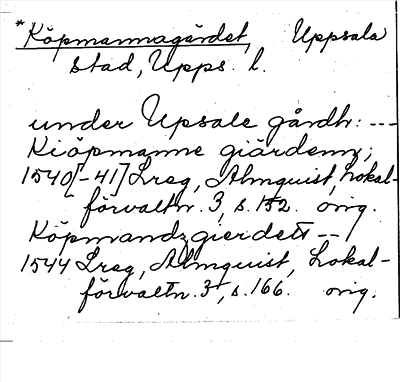 *Köpmannagärdet, Uppsala
stad, Upps. l.
under Upsale gårdh: ---
Kiöpmanne giärdenn;
1540[-41] Lreg, Almquist, Lokal-
förvaltn. 3, s. 152. orig.
Köpmandz gierdett --
1544 Lreg, Almquist, Lokal-
förvaltn. 3, s. 166. orig.